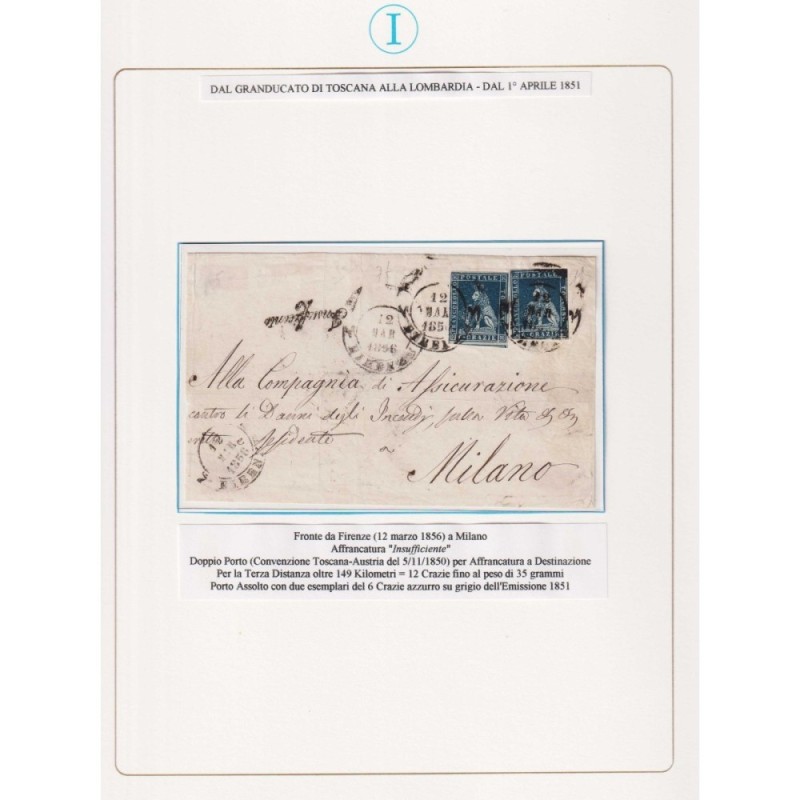 I
DAL GRANDUCATO DI TOSCANA ALLA LOMBARDIA - DAL 1° APRILE 1851
POSTALE
POSTALE
CRAZIE
CRAZIE
12
MAR
1856
FIRENZE
12
MAR
1856
12
MAR
Insufficiente
Alla Compagnia di Assicurazione
contro li Danni degli Incendj, sulla Vita & &
Milano
12
1856
FIREN
Fronte da Firenze (12 marzo 1856) a Milano
Affrancatura "Insufficiente"
Doppio Porto (Convenzione Toscana-Austria del 5/11/1850) per Affrancatura a Destinazione
Per la Terza Distanza oltre 149 Kilometri = 12 Crazie fino al peso di 35 grammi
Porto Assolto con due esemplari del 6 Crazie azzurro su grigio dell'Emissione 1851